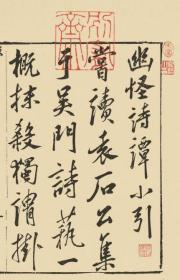 幽怪詩譚小引
嘗讀袁石公集
于吳門詩藪一
概抹殺獨謂掛